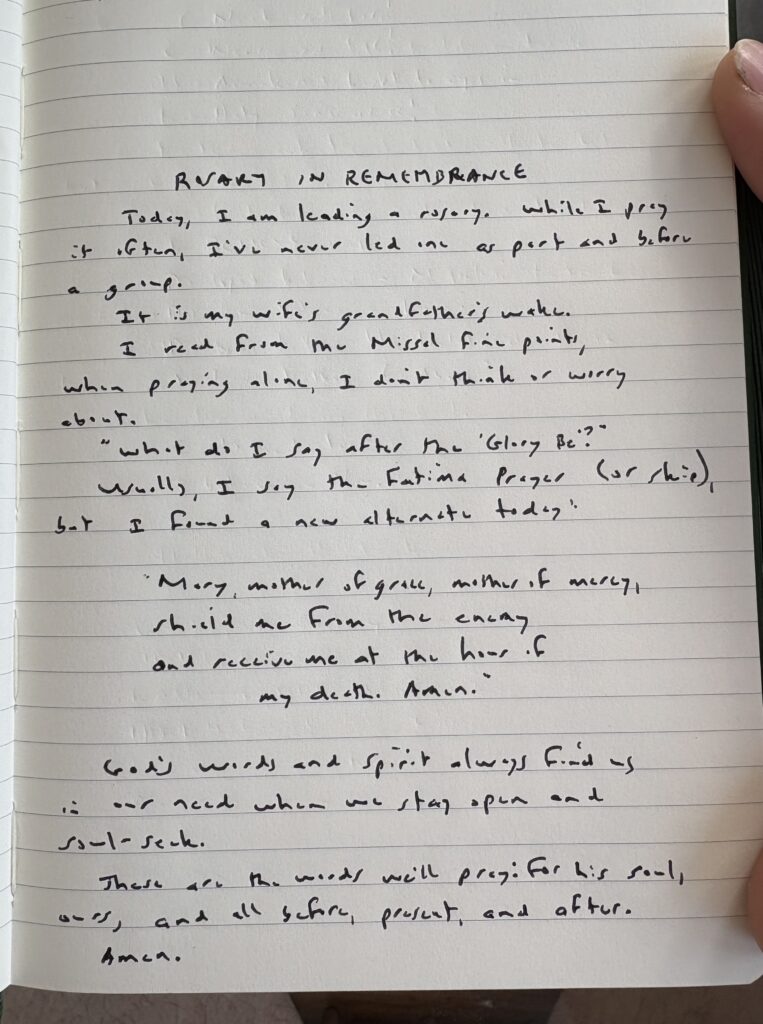 ROSARY IN REMEMBRANCE
Today, I am leading a rosary. While I pray
it often, I've never led one as part and before
a group.
It is my wife's grandfather's wake.
I read from the Missal fine points,
when praying alone, I don't think or worry
about.
"What do I say after the 'Glory Be'?"
Usually, I say the Fatima Prayer (or skip),
but I found a new alternate today:
"Mary, mother of grace, mother of mercy,
shield me from the enemy
and receive me at the hour of
my death. Amen."
God's words and spirit always find us
in our need when we stay open and
soul-seek.
These are the words we'll pray: for his soul,
ours, and all before, present, and after.
Amen.